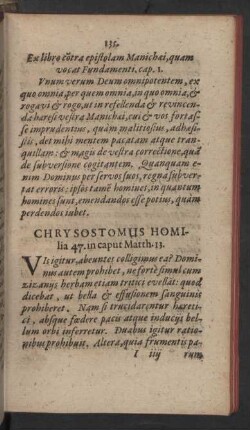 135.
Ex libro cōtra epistolam Manichæi, quam
vocat Fundamenti. cap. 1.
Vnum verum Deum omnipotentem, ex
quo omnia, per quem omnia, in quo omnia, &
rogavi & rogo, ut in refellenda & revincen-
da hæresi vestra Manichæi, cui & vos fortas-
se imprudentius, quam malitiosius, adhæsi-
stis, det mihi mentem pacatam atque tran-
quillam: & magis de vestra correctione, quā
de subversione cogitantem. Quanquam e-
nim Dominus per servos suos, regna subver-
tat erroris: ipsos tamē homines, in quantum
homines sunt, emendandos esse potius, quàm
perdendos iubet.
CHRYSOSTOMUS HOMI-
lia 47. in caput Matth. 13.
VT igitur, abeuntes colligimus ea? Domi-
nus autem prohibet, ne fortè simul cum
zizanijs herbam etiam tritici evellāt: quod
dicebat, ut bella & effusionem sanguinis
prohiberet. Nam si trucidarentur hæreti-
ci, absque fœdere pacis atque induciis bel-
lum orbi inferretur. Duabus igitur ratio-
nibus prohibuit. Altera, quia frumentis pa-
I iiij rum